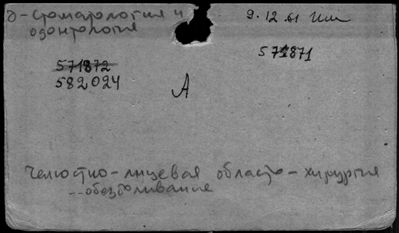 д-стоматология и
одонтология
9.12.61 Им
571871
571872
582024
А
Челюстно-лицевая область-хирургия
--обезболивание